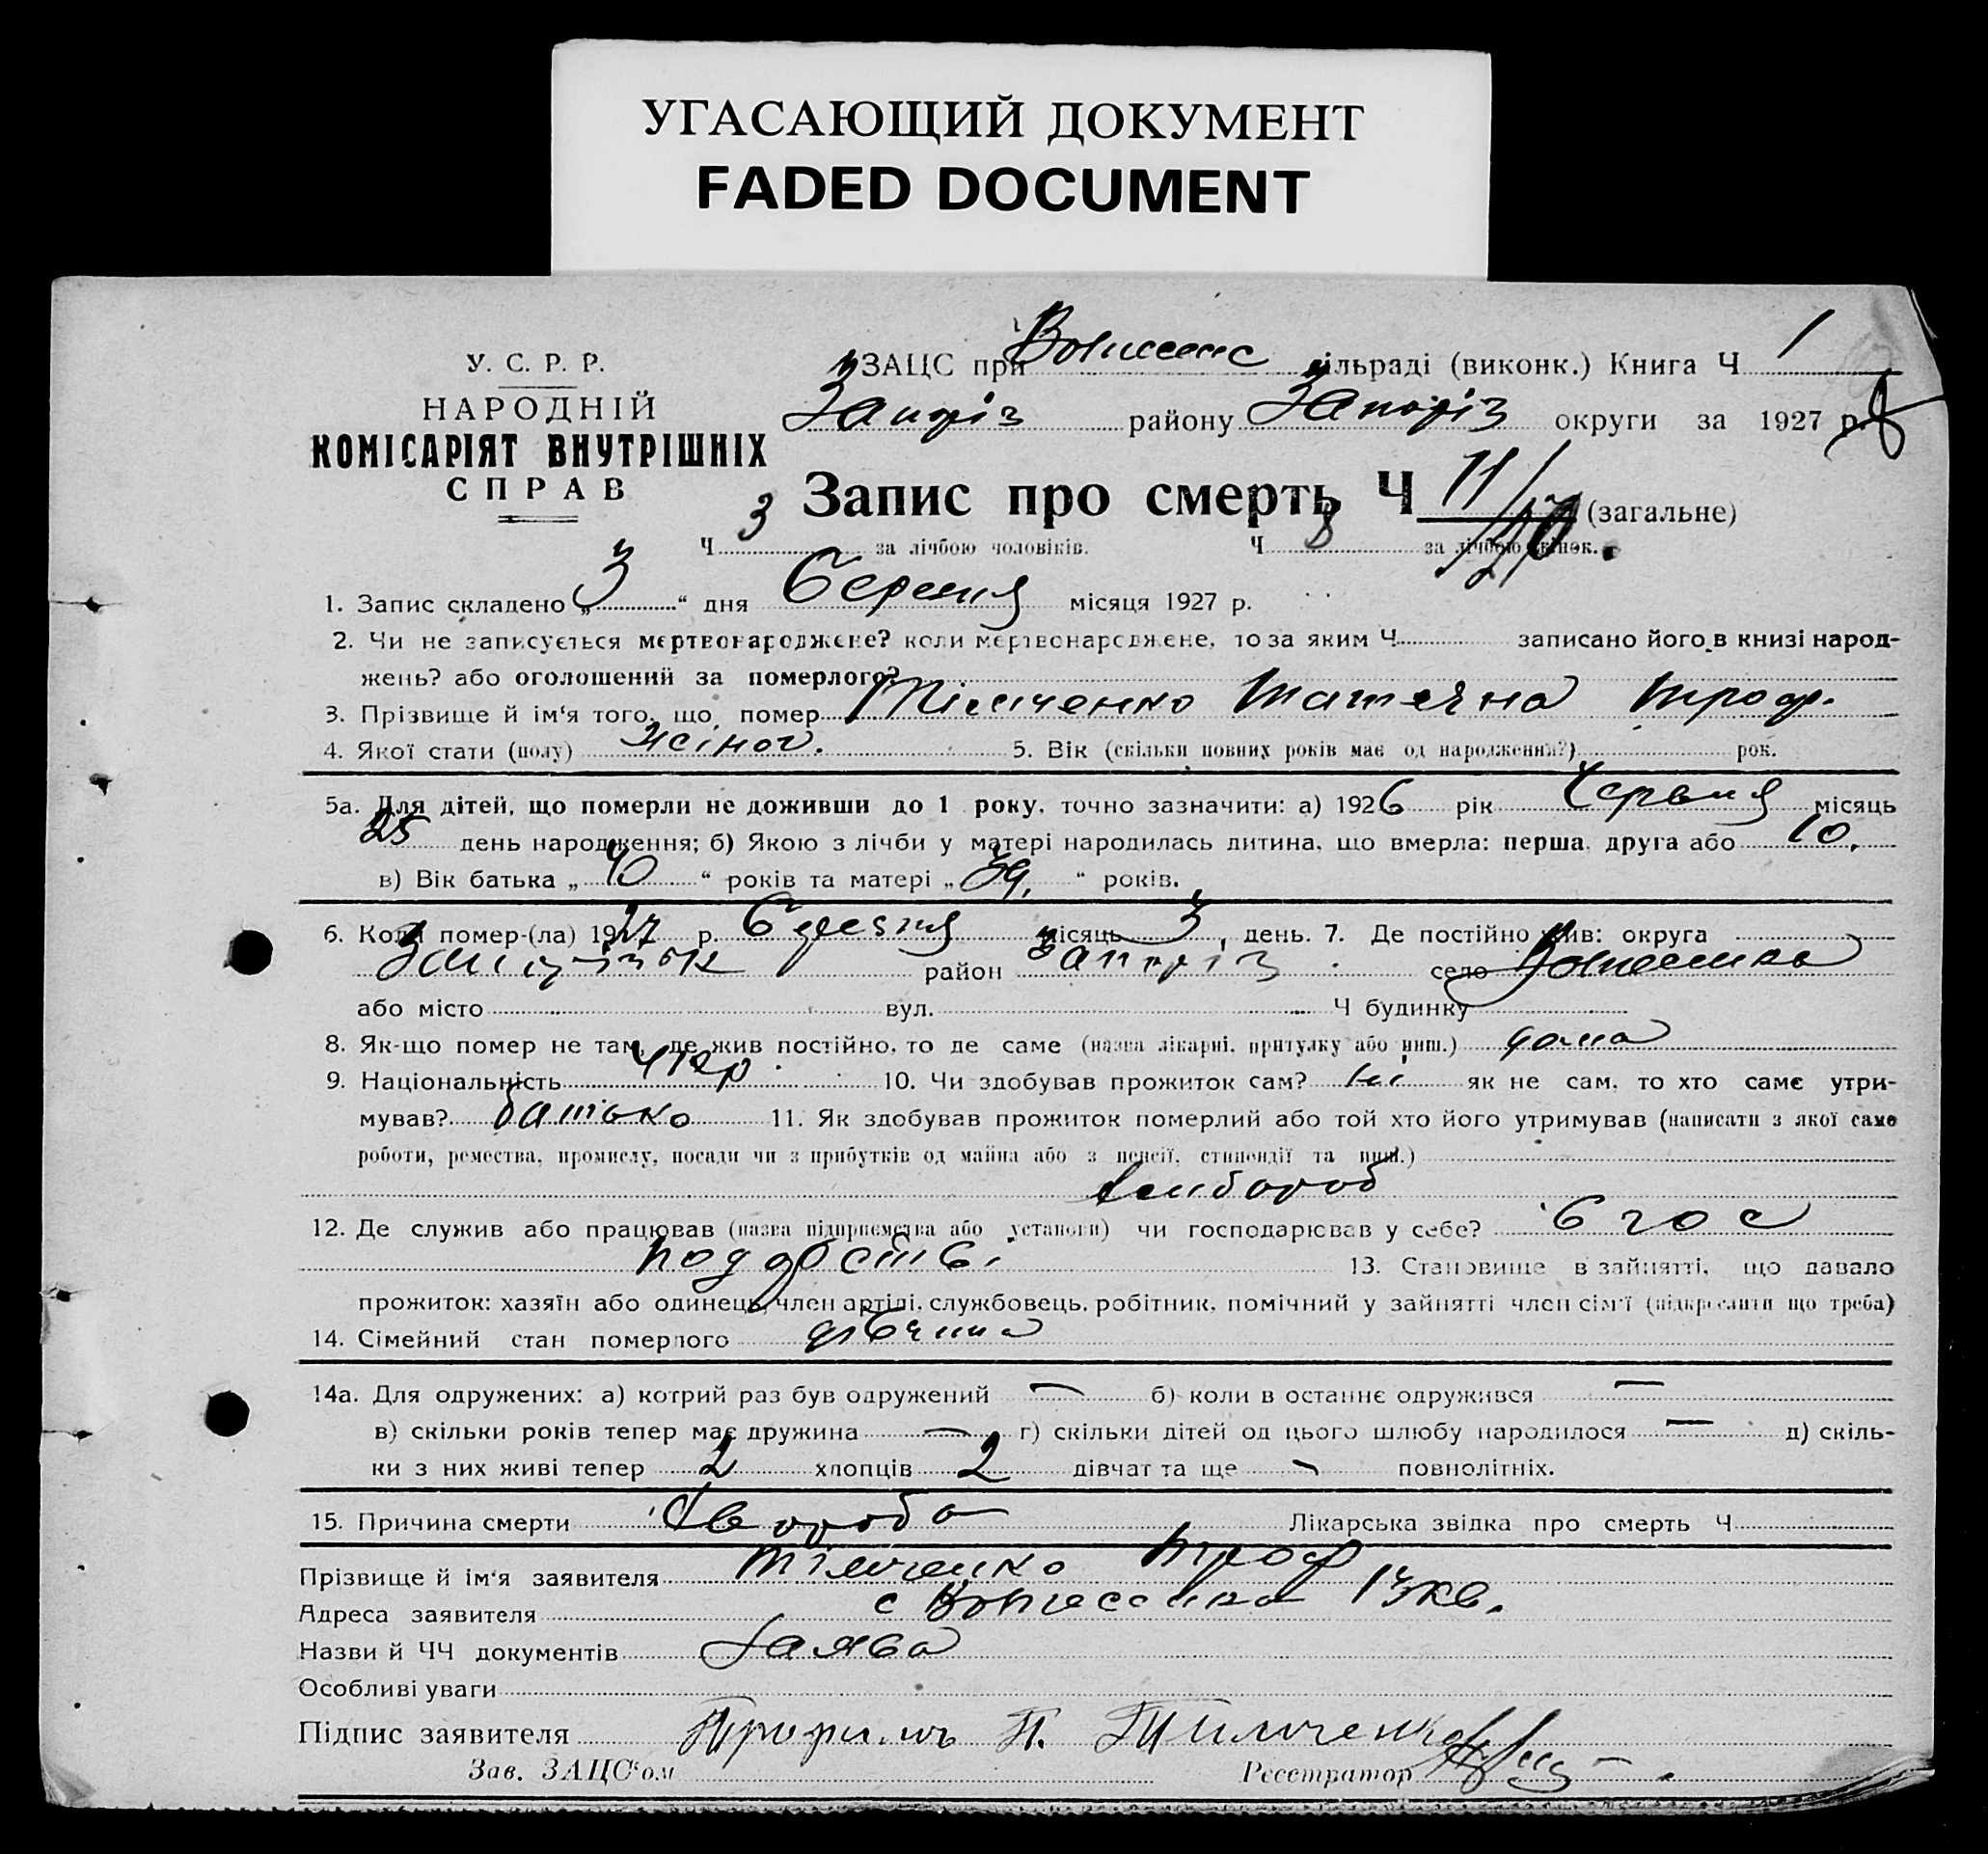 УГАСАЮЩИЙ ДОКУМЕНТ
FADED DOCUMENT
У. С. Р. Р.
НАРОДНІЙ
КОМІСАРІЯТ ВНУТРІШНІХ
СПРАВ
ЗАЦС при Вознесенс сільраді (виконк.) Книга Ч 1
Запоріз району Запоріз округи за 1927 р.
Запис про смерть Ч 11/ (загальне)
Ч 3 за лічбою чоловіків. Ч 8 за лічбою жінок.
1. Запис складено „3“ дня березня місяця 1927 р.
2. Чи не записується мертвонароджене? коли мертвонароджене, то за яким Ч записано його в книзі народ-
жень? або оголошений за померлого?
3. Прізвище й ім'я того, що помер Тімченко Татяна Троф.
4. Якої стати (полу) жіноч. 5. Вік (скільки повних років має од народження?) рок.
5а. Для дітей, що померли не доживши до 1 року, точно зазначити: а) 1926 рік Червня місяць
25 день народження; б) Якою з лічби у матері народилась дитина, що вмерла: перша, друга або 10.
в) Вік батька „40“ років та матері „39.“ років.
6. Коли помер-(ла) 1927 р. березня місяць 3 день. 7. Де постійно жив: округа
Запорізьк район Запоріз село Вознесенка
або місто вул. Ч будинку
8. Як-що помер не там, де жив постійно, то де саме (назва лікарні, притулку або инш.) дома
9. Національність Укр. 10. Чи здобував прожиток сам? ні як не сам, то хто саме утри-
мував? батько 11. Як здобував прожиток померлий або той хто його утримував (написати з якої саме
роботи, ремества, промислу, посади чи з прибутків од майна або з пенсії, стипендії та инш.)
хлібороб
12. Де служив або працював (назва підприємства або установи) чи господарював у себе? в гос
подарстві 13. Становище в зайнятті, що давало
прожиток: хазяїн або одинець, член артілі, службовець, робітник, помічний у зайнятті член сім'ї (підкреслити що треба)
14. Сімейний стан померлого дівчина
14а. Для одружених: а) котрий раз був одружений — б) коли в останнє одружився —
в) скільки років тепер має дружина — г) скільки дітей од цього шлюбу народилося — д) скіль-
ки з них живі тепер 2 хлопців 2 дівчат та ще - повнолітніх.
15. Причина смерти Хвороба Лікарська звідка про смерть Ч
Прізвище й ім'я заявителя Тімченко Троф
Адреса заявителя с Вознесенка 13 кв.
Назви й ЧЧ документів Заява
Особливі уваги
Підпис заявителя Трофимъ П. Тимченко
Зав. ЗАЦС'ом Реєстратор